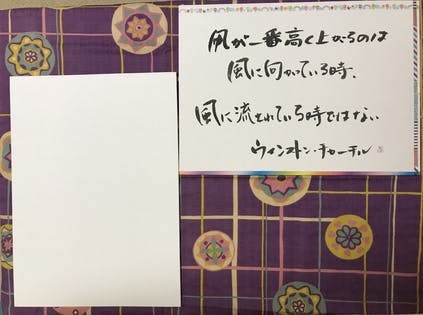 凧が一番高く上がるのは
風に向かっている時。
風に流されている時ではない
ウィンストン・チャーチル